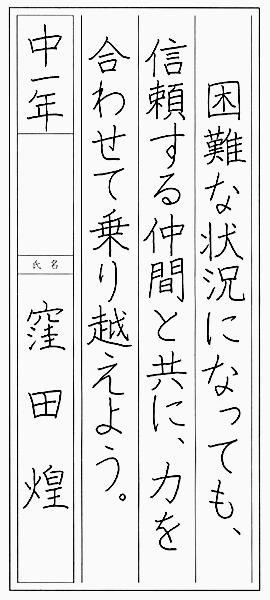 困難な状況になっても、
信頼する仲間と共に、力を
合わせて乗り越えよう。
中一年
氏名
窪田煌